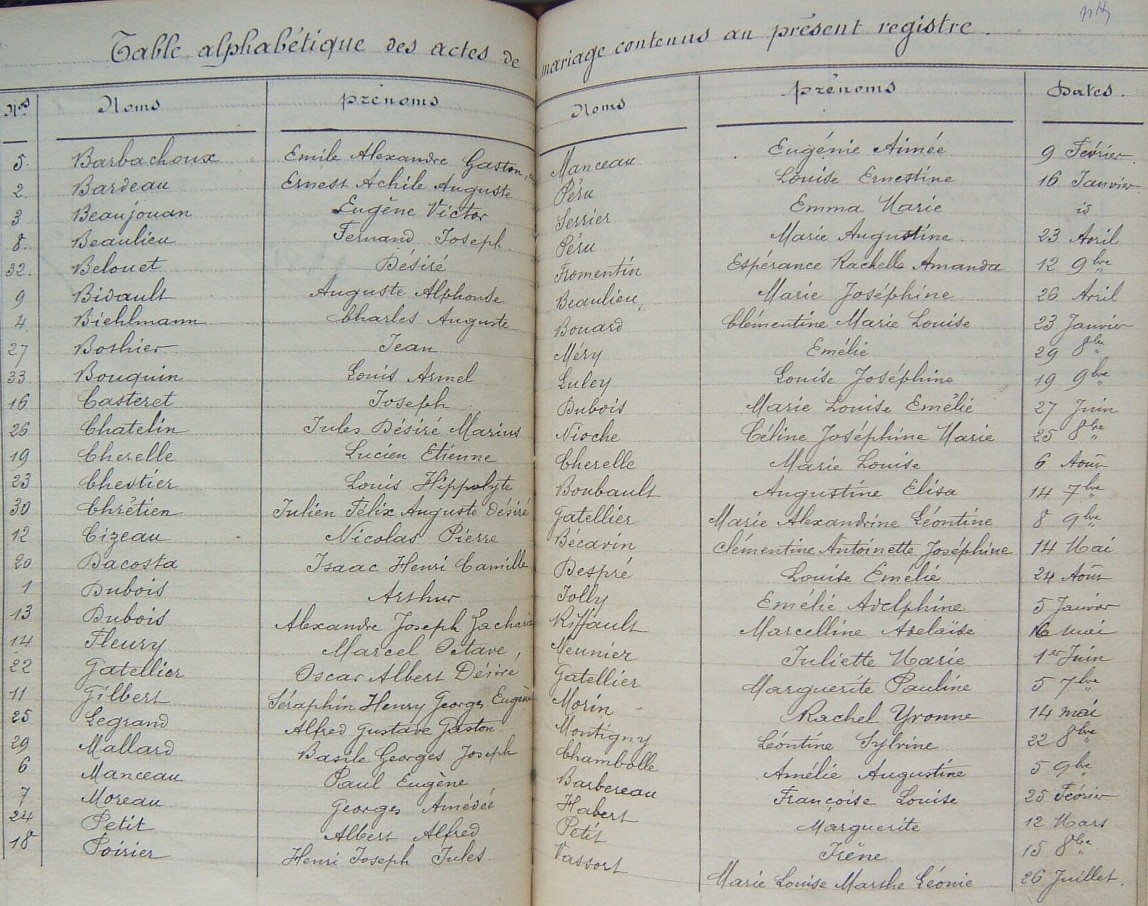 Table alphabétique des actes de mariage contenus au présent registre.
Nos Noms prénoms Noms prénoms Dates.
5. Barbachoux Emile Alexandre Gaston Manceau Eugénie Aimée 9 Février
2 Bardeau Ernest Achile Auguste Péru Louise Ernestine 16 Janvier
3 Beaujouan Eugène Victor Serrier Emma Marie id
8. Beaulieu Fernand Joseph Péru Marie Augustine 23 Avril
32. Belouet Désiré Fromentin Espérance Rachelle Amanda 12 9bre
9 Bidault Auguste Alphonse Beaulieu Marie Joséphine 26 Avril
4. Biehlmann Charles Auguste Bouard Clémentine Marie Louise 23 Janvier
27 Bothier Jean Méry Emélie 29 8bre
33. Bouquin Louis Armel Luley Louise Joséphine 19 9bre
16 Casteret Joseph Dubois Marie Louise Emélie 27 Juin
26 Chatelin Jules Désiré Marius Nioche Céline Joséphine Marie 25 8bre
19 Cherelle Lucien Etienne Cherelle Marie Louise 6 Août
23 Chestier Louis Hippolyte Boubault Augustine Elisa 14 7bre
30 Chrétien Julien Félix Auguste Désiré Gatellier Marie Alexandrine Léontine 8 9bre
12 Cizeau Nicolas Pierre Becavin Clémentine Antoinette Joséphine 14 Mai
20 Dacosta Isaac Henri Camille Despré Louise Emélie 24 Août
1 Dubois Arthur Jolly Emélie Adelphine 5 Janvier
13 Dubois Alexandre Joseph Zacharie Riffault Marcelline Adelaïde 16 mai
14 Fleury Marcel Octave, Meunier Juliette Marie 1er Juin
22 Gatellier Oscar Albert Désiré Gatellier Marguerite Pauline 5 7bre
11 Gilbert Séraphin Henry Georges Eugène Morin Rachel Yvonne 14 mai
25 Legrand Alfred Gustave Gaston Montigny Léontine Sylvine 22 8bre
29 Mallard Basile Georges Joseph Chambolle Amélie Augustine 5 9bre
6 Manceau Paul Eugène Barbereau Françoise Louise 25 Février
7 Moreau Georges Amédée Habert Marguerite 12 Mars
24 Petit Albert Alfred Petit Irène 15 8bre
18 Poirier Henri Joseph Jules Vassort Marie Louise Marthe Léonie 26 Juillet.